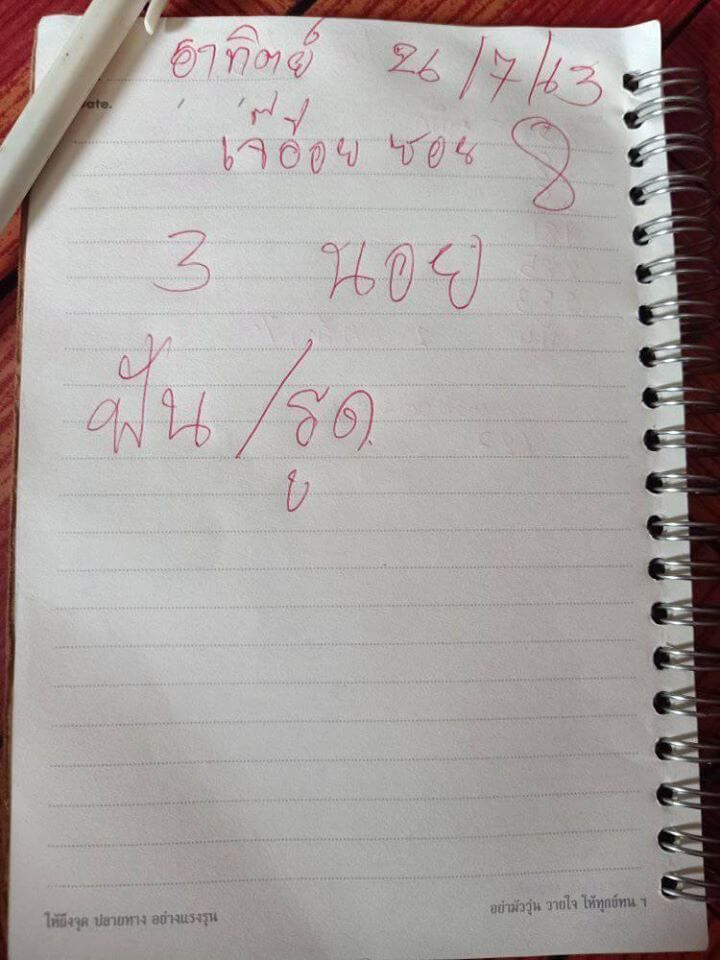 อาทิตย์ 26/7/63
ate.
เจ๊อ้อย ซอย 8
3 นอย
ฟัน / รูด
ให้ถึงจุด ปลายทาง อย่างแรงรุน
อย่ามัววุ่น วายใจ ให้ทุกข์ทน ฯ